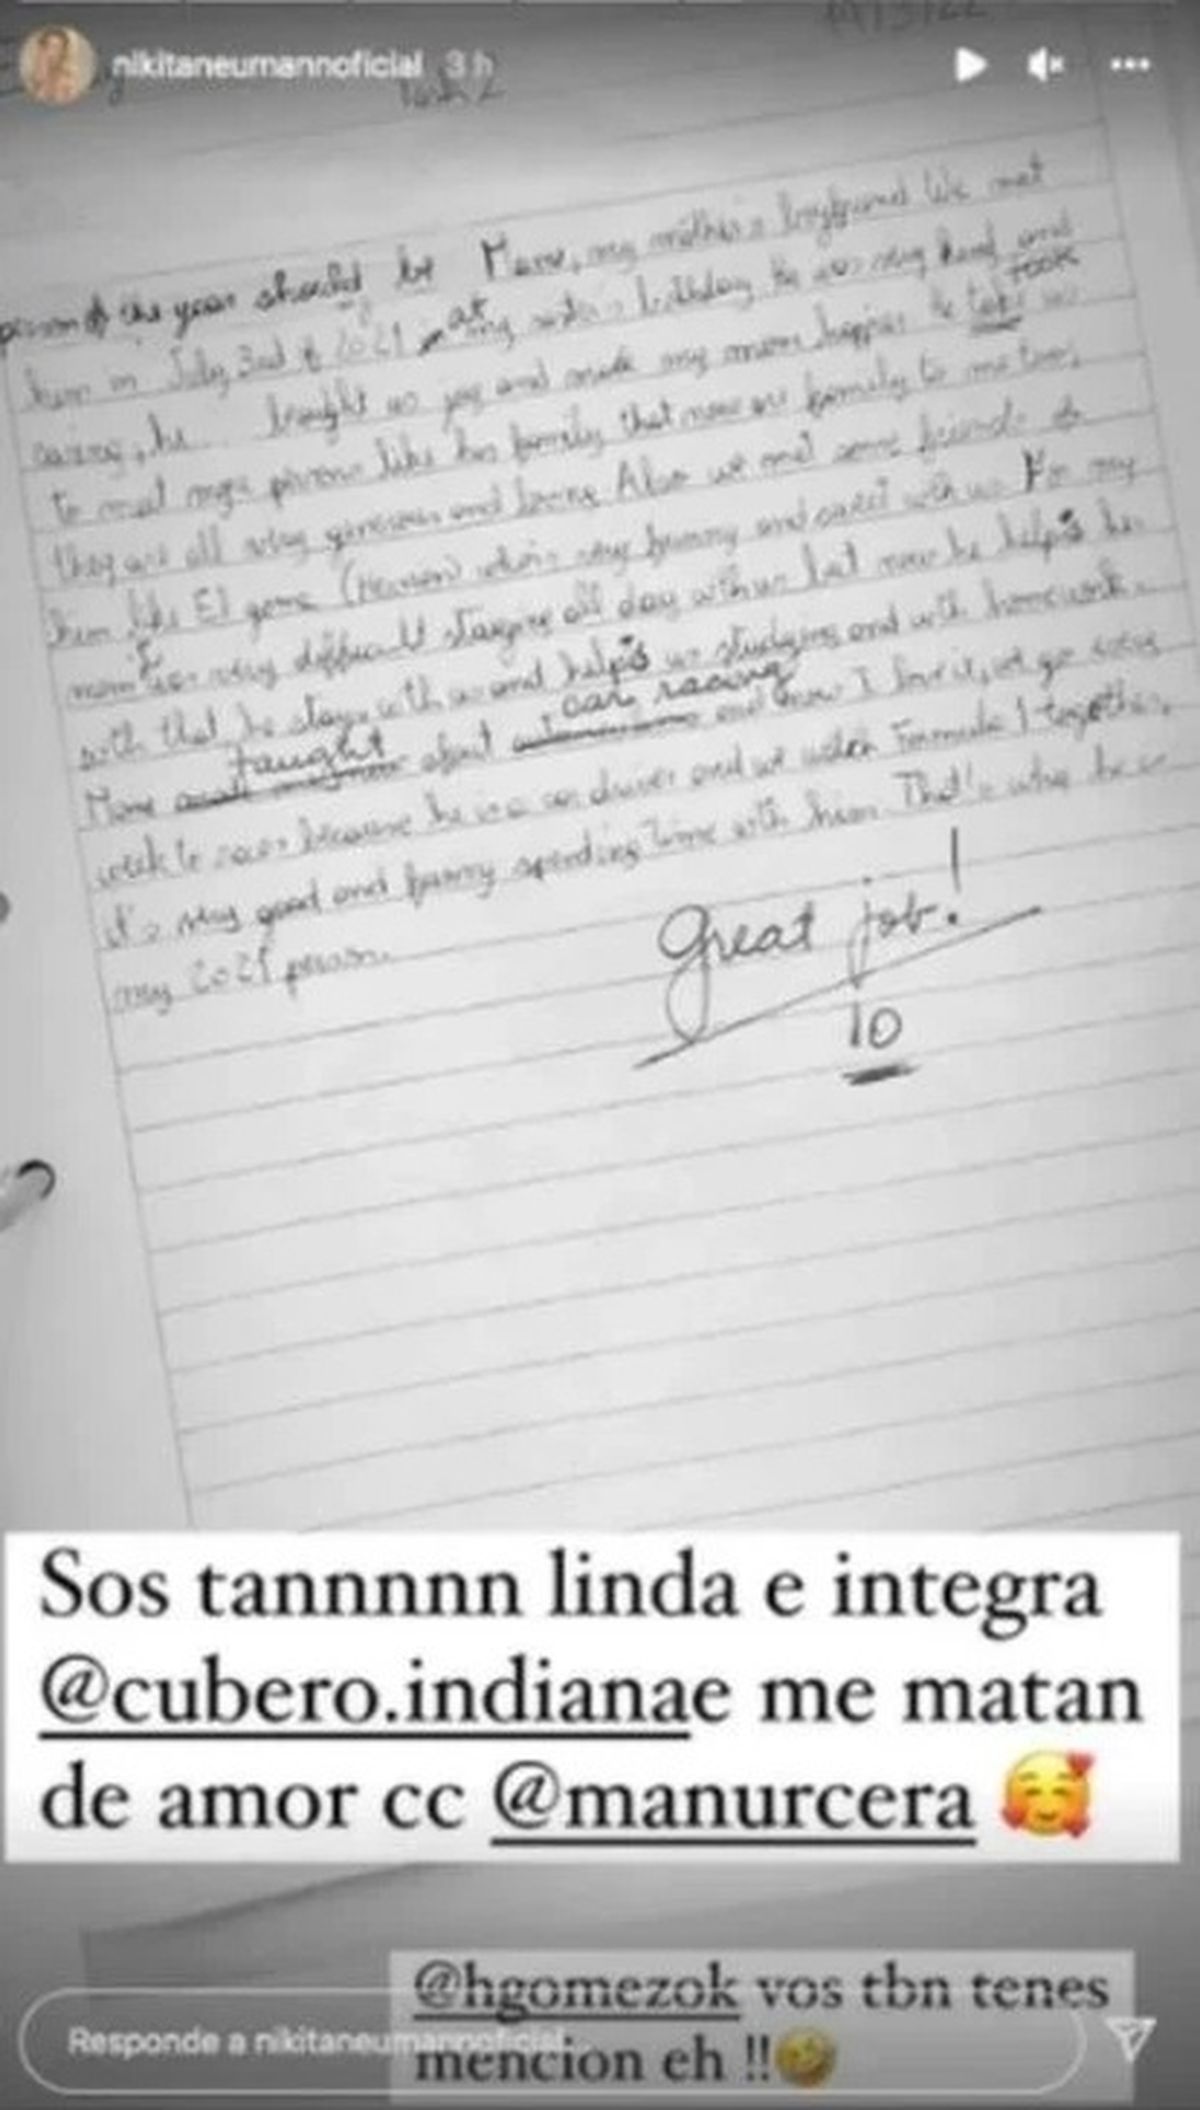 nikitaneumannoficial 3 h
person of the year should be Manu, my mother's boyfriend We met
him in July 3rd of 2021 at my sister's birthday he was very kind and
took
caring, he brought us joy and made my mom happier he take us
to meet more persons like his family that now are family to me too,
they are all very generous and loving Also we met some friends of
him like El gome (Hernan) who is very funny and sweet with us For my
mom it was very difficult staying all day with us but now he helps her
with that he stays with us and helps us studying and with homework.
taught car racing
Manu about and now I love it, we go every
week to races because he is a car driver and we watch Formula 1 together,
it's very good and funny spending time with him. That's why he is
my 2021 person.
Great job!
10
Sos tannnnnn linda e integra
@cubero.indianae me matan
de amor cc @manurcera 🥰
@hgomezok vos tbn tenes
mencion eh !!🤣
Responde a nikitaneumannoficial...